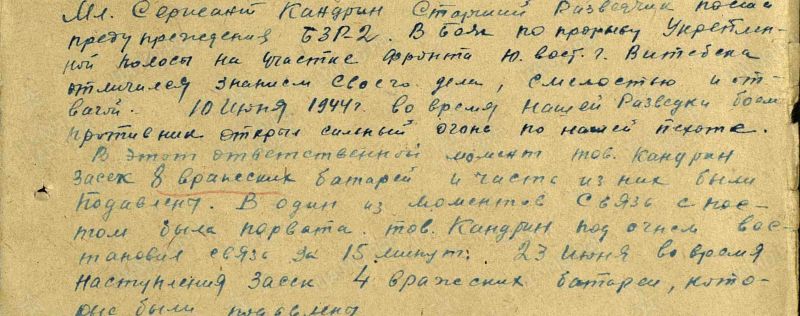 Мл. Сержант Кандрин Старший Разведчик поста
предупреждения БЗР2. В боях по прорыву Укреплен-
ной полосы на участке фронта ю. вост. г. Витебска
отличился знанием своего дела, смелостью и от-
вагой. 10 июня 1944г. во время нашей Разведки боем
противник открыл сильный огонь по нашей пехоте.
В этот ответственный момент тов. Кандрин
засек 8 вражеских батарей и часть из них были
подавлены. В один из моментов Связь с пос-
том была порвата. тов. Кандрин под огнем вос-
тановил связь за 15 минут. 23 июня во время
наступления засек 4 вражеских батареи, кото-
рые были подавлены